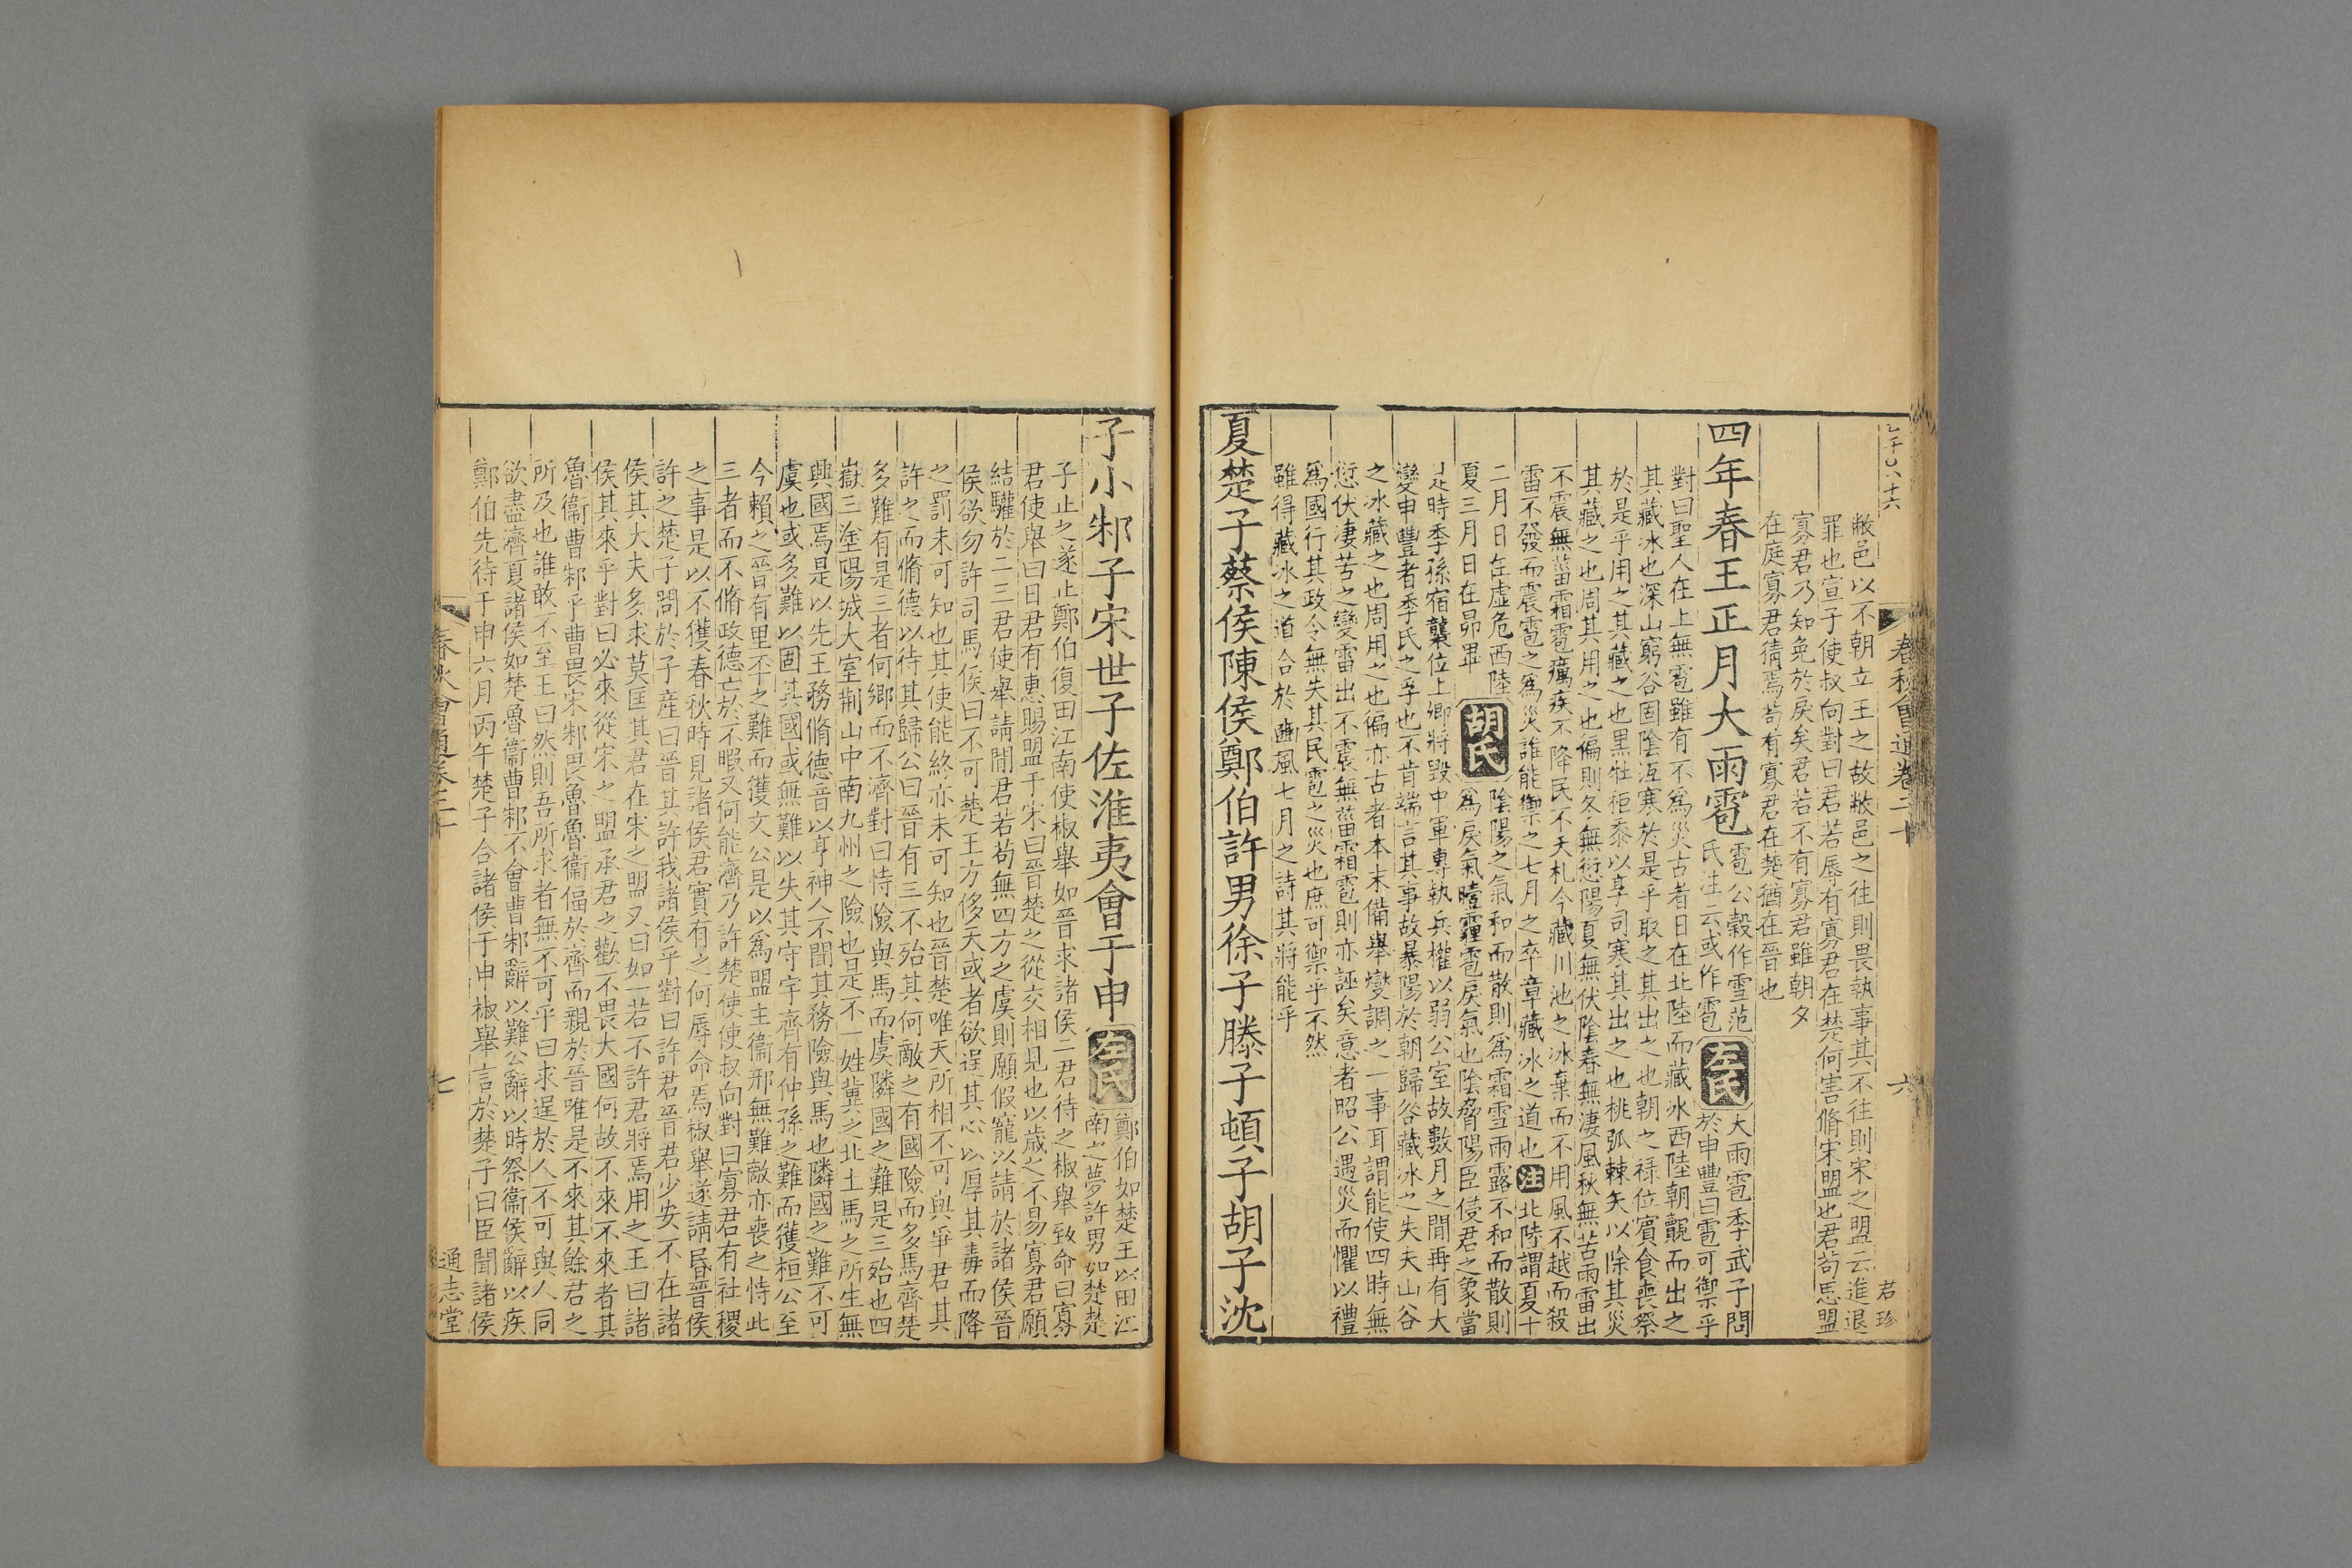 春秋會通卷二十
六
君珍
敝邑以不朝立王之故敝邑之往則畏執事其不往則宋之盟云進退
罪也宣子使叔向對曰君若辱有寡君在楚何害脩宋盟也君苟思盟
寡君乃知免於戾矣君若不有寡君雖朝夕
在庭寡君猜焉苟有寡君在楚猶在晉也
四年春王正月大雨雹
雹公穀作雪范
氏注云或作雹
左氏
大雨雹季武子問
於申豐曰雹可禦乎
對曰聖人在上無雹雖有不爲災古者日在北陸而藏冰西陸朝覿而出之
其藏冰也深山窮谷固陰沍寒於是乎取之其出之也朝之祿位賓食喪祭
於是乎用之其藏之也黑牡秬黍以享司寒其出之也桃弧棘矢以除其災
其藏之也周其用之也徧則冬無愆陽夏無伏陰春無淒風秋無苦雨雷出
不震無菑霜雹癘疾不降民不夭札今藏川池之冰棄而不用風不越而殺
雷不發而震雹之爲災誰能禦之七月之卒章藏冰之道也
注
北陸謂夏十
二月日在虛危西陸
夏三月日在昴畢
胡氏
陰陽之氣和而散則爲霜雪雨露不和而散則
爲戾氣曀霾雹戾氣也陰脅陽臣侵君之象當
是時季孫宿襲位上卿將毀中軍專執兵權以弱公室故數月之閒再有大
變申豐者季氏之孚也不肯端言其事故暴陽於朝歸咎藏冰之失夫山谷
之冰藏之也周用之也徧亦古者本末備舉燮調之一事耳謂能使四時無
愆伏淒苦之變雷出不震無菑霜雹則亦誣矣意者昭公遇災而懼以禮
爲國行其政令無失其民雹之災也庶可禦乎不然
雖得藏冰之道合於豳風七月之詩其將能乎
夏楚子蔡侯陳侯鄭伯許男徐子滕子頓子胡子沈
子小邾子宋世子佐淮夷會于申
左氏
鄭伯如楚王以田江
南之夢許男如楚楚
子止之遂止鄭伯復田江南使椒舉如晉求諸侯二君待之椒舉致命曰寡
君使舉曰日君有惠賜盟于宋曰晉楚之從交相見也以歲之不易寡君願
結驩於二三君使舉請閒君若苟無四方之虞則願假寵以請於諸侯晉
侯欲勿許司馬侯曰不可楚王方侈天或者欲逞其心以厚其毒而降
之罰未可知也其使能終亦未可知也晉楚唯天所相不可與爭君其
許之而脩德以待其歸公曰晉有三不殆其何敵之有國險而多馬齊楚
多難有是三者何鄉而不濟對曰恃險與馬而虞隣國之難是三殆也四
嶽三塗陽城大室荆山中南九州之險也是不一姓冀之北土馬之所生無
興國焉是以先王務脩德音以享神人不聞其務險與馬也隣國之難不可
虞也或多難以固其國或無難以失其守宇齊有仲孫之難而獲桓公至
今賴之晉有里丕之難而獲文公是以爲盟主衞邢無難敵亦喪之恃此
三者而不脩政德亡於不暇又何能濟乃許楚使使叔向對曰寡君有社稷
之事是以不獲春秋時見諸侯君實有之何辱命焉椒舉遂請昏晉侯
許之楚子問於子産曰晉其許我諸侯乎對曰許君晉君少安不在諸
侯其大夫多求莫匡其君在宋之盟又曰如一若不許君將焉用之王曰諸
侯其來乎對曰必來從宋之盟承君之歡不畏大國何故不來不來者其
魯衞曹邾乎曹畏宋邾畏魯魯衞偪於齊而親於晉唯是不來其餘君之
所及也誰敢不至王曰然則吾所求者無不可乎曰求逞於人不可與人同
欲盡濟夏諸侯如楚魯衞曹邾不會曹邾辭以難公辭以時祭衞侯辭以疾
鄭伯先待于申六月丙午楚子合諸侯于申椒舉言於楚子曰臣聞諸侯
春秋會通卷二十
七
通志堂